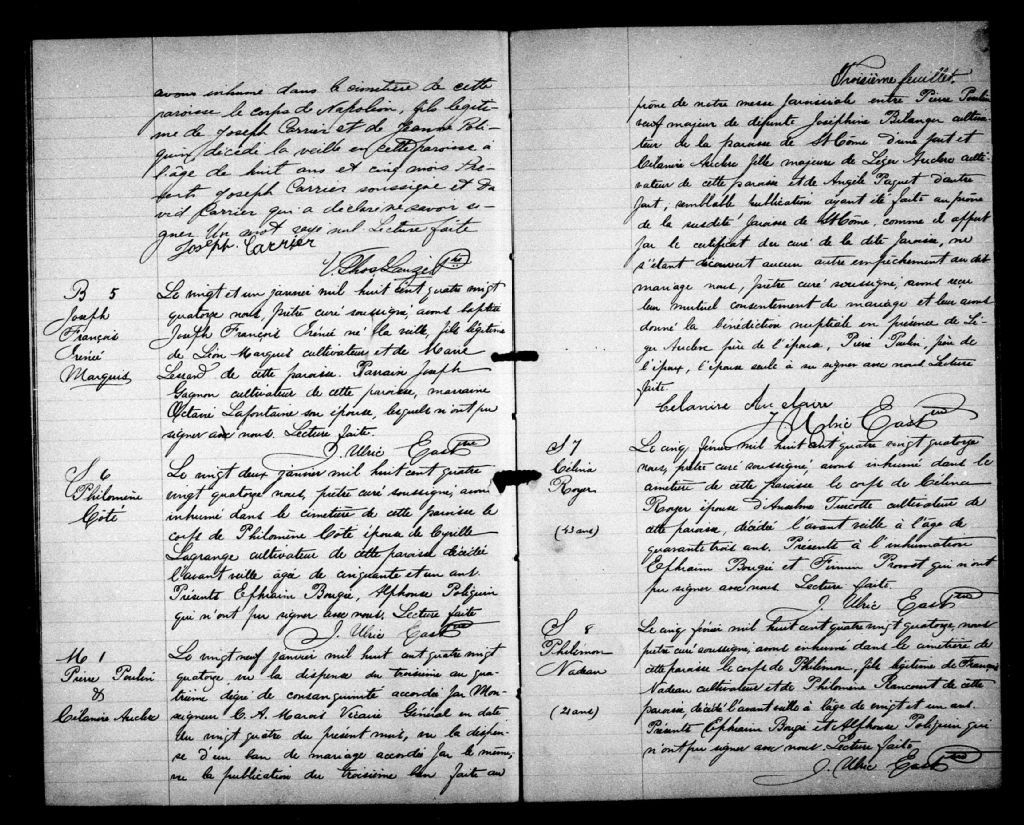 avons inhumé dans le cimetière de cette
paroisse le corps de Napoléon, fils légiti-
me de Joseph Carrier et de Jeanne Poli-
quin, décédé la veille en cette paroisse à
l'âge de huit ans et cinq mois Pré-
sents Joseph Carrier soussigné et Da-
vid Carrier qui a déclaré ne savoir si-
gner. Un mot rayé nul Lecture faite
Joseph. Carrier
V. Thos Ptre
B 5
Joseph
François
Marquis
Le vingt et un janvier mil huit cent quatre vingt
quatorze nous, prêtre curé soussigné, avons baptisé
Joseph François né la veille, fils légitime
de Léon Marquis cultivateur et de Marie
Lessard de cette paroisse. Parrain Joseph
Gagnon cultivateur de cette paroisse, marraine
Octavie Lafontaine son épouse, lesquels n'ont pu
signer avec nous. Lecture faite.
J. Ulric East ptre
S. 6
Philomène
Côté
Le vingt deux janvier mil huit cent quatre
vingt quatorze nous, prêtre curé soussigné, avons
inhumé dans le cimetière de cette paroisse le
corps de Philomène Côté épouse de Cyrille
Lagrange cultivateur de cette paroisse décédée
l'avant veille agée de cinquante et un ans.
Présents Ephraim Bougie, Alphonse Poliquin
qui n'ont pu signer avec nous. Lecture faite
J. Ulric East ptre
M 1
Pierre Poulin
&
Célanire Auclere
Le vingt neuf janvier mil huit cent quatre vingt
quatorze vu la dispense du troisième au qua-
trième degré de consanguinité accordée par Mon-
seigneur C. A. Marois Vicaire Général en date
du vingt quatre du présent mois, vu la dispen-
se d'un ban de mariage accordée par le même,
vu la publication du troisième ban faite au
Troisième feuillet.
prône de notre messe paroissiale entre Pierre Poulin
veuf majeur de défunte Joséphine Bélanger cultiva-
teur de la paroisse de St Côme d'une part et
Célanire Auclere fille majeure de Léger Auclere culti-
vateur de cette paroisse et de Angèle Paquet d'autre
part, semblable publication ayant été faite au prône
de la susdite paroisse de St Côme, comme il appert
par le certificat du curé de la dite paroisse, ne
s'étant découvert aucun autre empêchement au dit
mariage nous, prêtre curé soussigné, avons reçu
leur mutuel consentement de mariage et leur avons
donné la bénédiction nuptiale en présence de Lé-
ger Auclere père de l'épouse, Pierre Poulin père de
l'époux, l'épouse seule a su signer avec nous Lecture
faite.
Célanire
J Ulric East ptre
S 7
Célina
Royer
(43 ans)
Le cinq février mil huit cent quatre vingt quatorze
nous, prêtre curé soussigné, avons inhumé dans le
cimetière de cette paroisse le corps de Célina
Royer épouse d'Anselme Turcotte cultivateur de
cette paroisse, décédée l'avant veille à l'âge de
quarante trois ans. Présents à l'inhumation
Ephraim Bougie et Firmin Provost qui n'ont
pu signer avec nous. Lecture faite.
J. Ulric East ptre
S 8
Philémon
Nadeau
(21 ans)
Le cinq février mil huit cent quatre vingt quatorze, nous
prêtre curé soussigné, avons inhumé dans le cimetière de
cette paroisse le corps de Philémon, fils légitime de François
Nadeau cultivateur et de Philomène Rancourt de cette
paroisse, décédé l'avant veille à l'âge de vingt et un ans.
Présents Ephraim Bougie et Alphonse Poliquin qui
n'ont pu signer avec nous. Lecture faite
J. Ulric East ptre